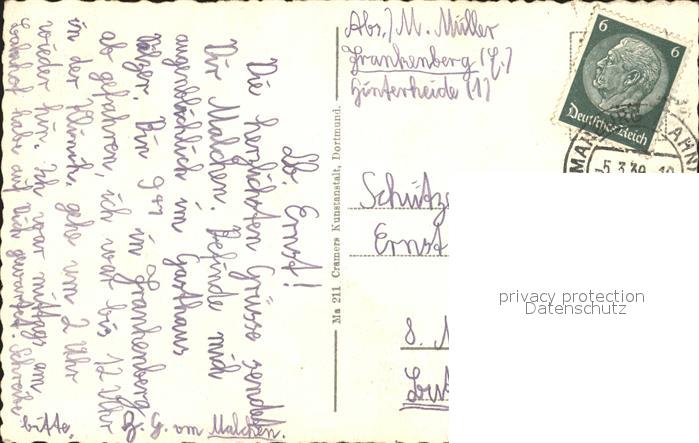 Lb. Ernst!
Die herzlichsten Grüsse sendet
Dir Malchen. Befinde mich
augenblicklich im Gasthaus
Bin 9⁰⁷ in Frankenberg
ab gefahren, ich war bis 12 Uhr
in der Klinik, gehe um 2 Uhr
wieder hin. Ich war mittags am
Bahnhof habe auf Dich gewartet. Schreibe
bitte.
G. G. von Malchen.
Ma 211 Cramers Kunstanstalt, Dortmund.
Abs./M. Müller
Frankenberg (E.)
Hinterheide (1)
6 6
Deutsches Reich
-5.3.39
Schütze
Ernst
8.
privacy protection
Datenschutz